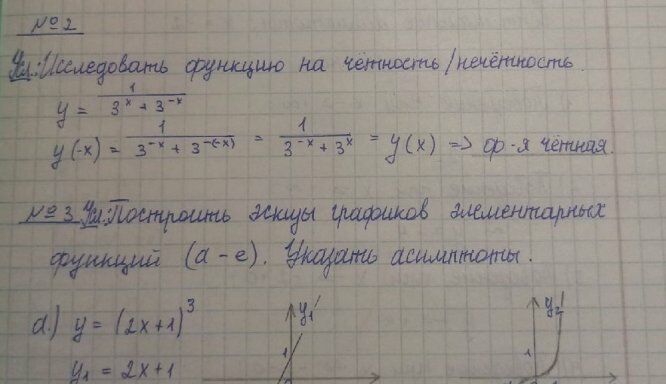 №2
Ул: Исследовать функцию на чётность/нечётность.
y = 1/(3^x + 3^-x)
y(-x) = 1/(3^-x + 3^-(-x)) = 1/(3^-x + 3^x) = y(x) => ф-я чётная.
№3 Ул: Построить эскизы графиков элементарных
функций (a – e). Указать асимптоты.
a.) y = (2x+1)^3
y1
1
y2
1
y1 = 2x+1